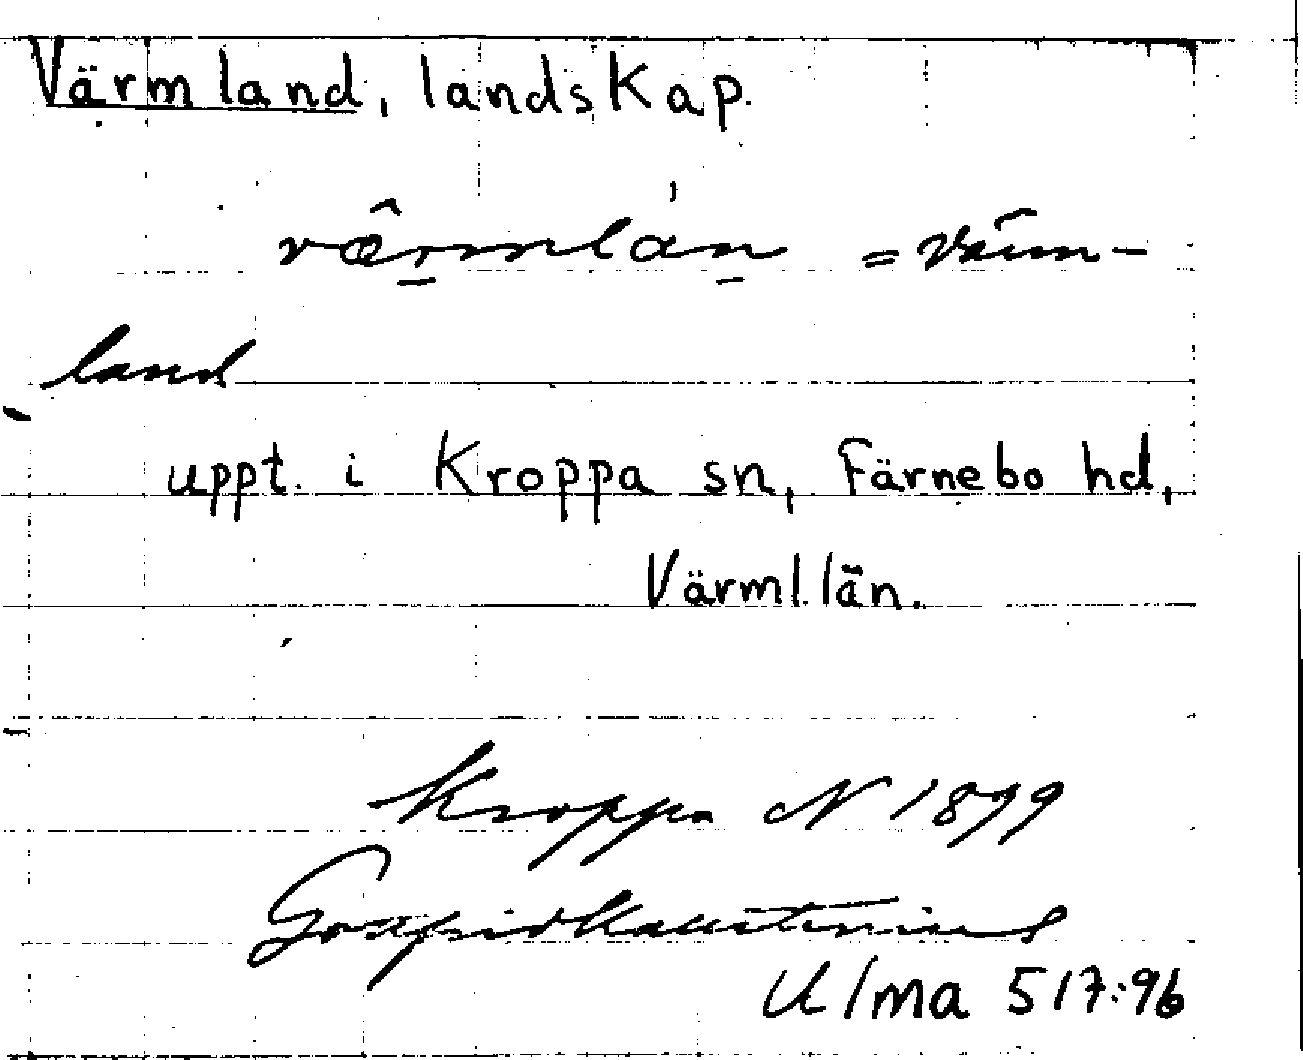 Värmland, landskap.
värmlan = Värm-
land
uppt. i Kroppa sn, Färnebo hd,
Värml. län.
Kroppa N 1899
Gottfrid Kallstenius
Ulma 517:96